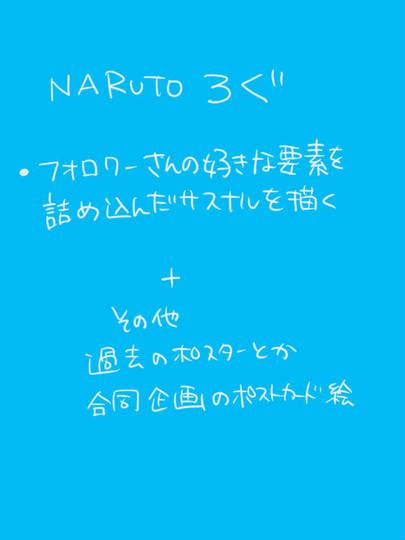 NARUTO ろぐ
・フォロワーさんの好きな要素を
詰め込んだサスナルを描く
+
その他
過去のポスターとか
合同企画のポストカード絵